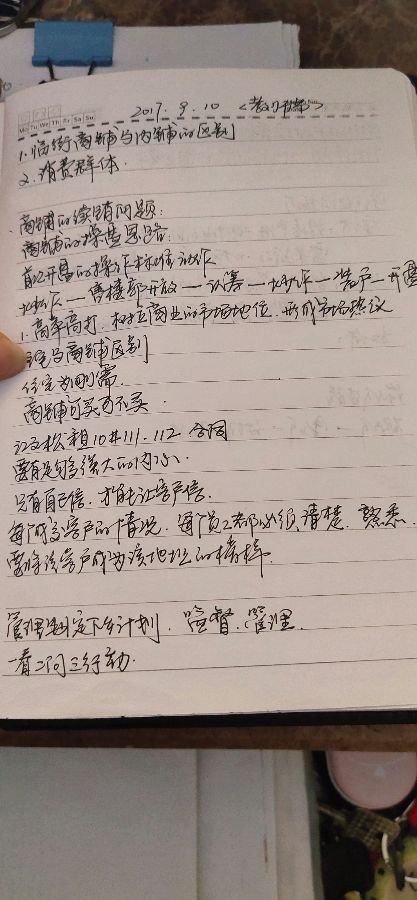 2017. 9. 10
Mo Tu We Th Fr Sa Su
1. 临街商铺与内铺的区别
2. 消费群体
商铺的续销问题:
商铺的操盘思路:
首次开盘的操作标准动作
售楼部开放 — 认筹 — 大动作 — 落户 — 开盘
1. 高举高打. 树立商业的市场地位. 形成市场热议
住宅与商铺区别
住宅为刚需
商铺可买可不买
租10#111. 112 合同
要有足够强大的内心
只有自己信. 才能让客户信.
每个成交客户的情况. 每个员工都必须清楚. 熟悉.
要将该客户成为该地址的榜样.
管理制定下年计划. 监督. 管理.
一看二问三行动.